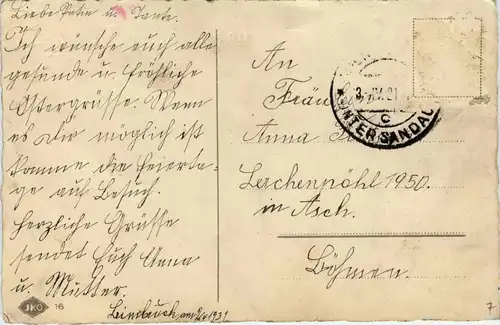 Liebe Patin u. Tante.
Ich wünsche euch alle
gesunde u. fröhliche
Ostergrüsse. Wenn
es Dir möglich ist
komme die Feierta-
ge auf Besuch.
Herzliche Grüsse
sendet Euch Anna
u. Mutter.
1931
JKO 16
3.IV.
UNTERSANDAU
c
An
Anna
Lerchenpöhl 1950.
in Asch.
Böhmen.
7